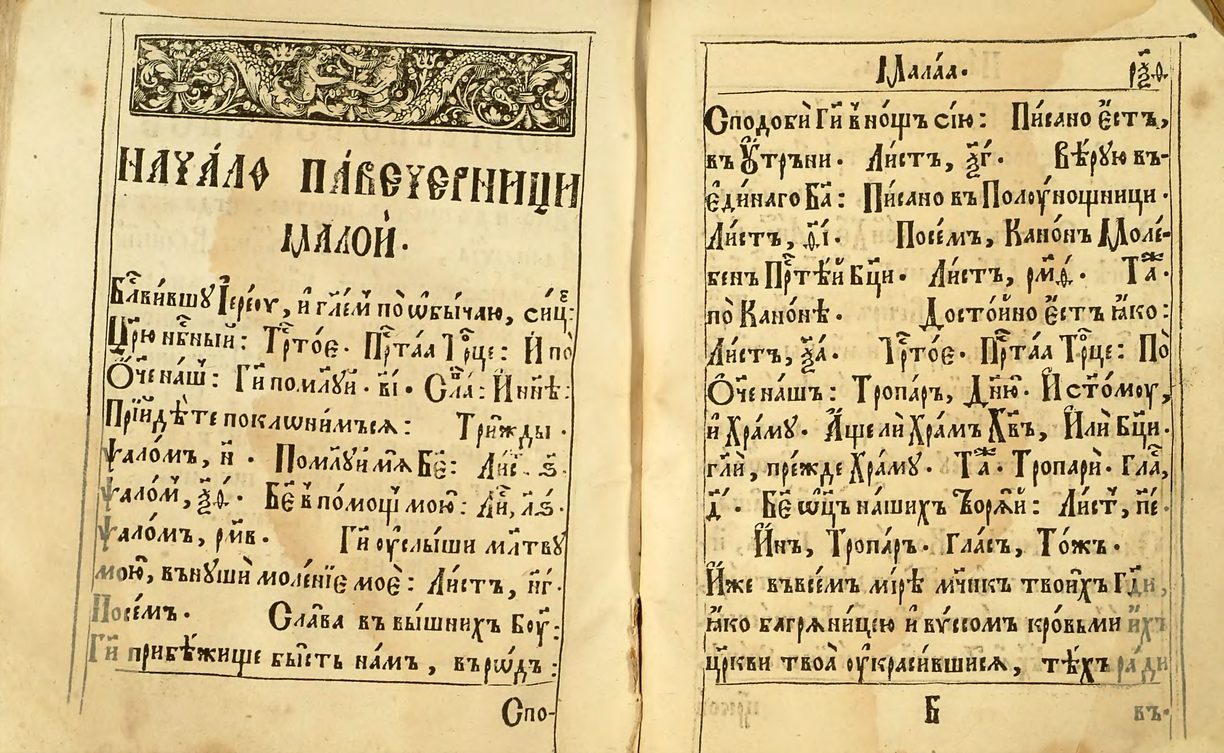 НАЧА́ЛО ПА́ВЕЧЕРНИЦИ
МАЛОЙ.
Бл҃ви́вшу Іере́оу, и҆ гл҃ем по̀ ѡ҆бы́чаю, си́це:
Цр҃ю нбⷭ҇ный: Трⷭ҇то́е. Прⷭ҇таѧ Трⷪ҇це: И҆ по̀
Ѻ҆́ч҃е наш: Гⷭ҇и помл҃уй. в҃і. Сла́: И҆ нн҃ѣ:
Прїйдѣ́те поклѡни́мъсѧ: Три́жды.
Ѱало́мъ, н҃. Поми́луй мѧ̀ Бж҃е:
Ѱало́м, ѯ҃ѳ. Бж҃е в по́мощ мою̀: Ли, л҃ѕ.
Ѱало́мъ, рм҃в. Гⷭ҇и оу҆слы́ши мл҃тву
мою̀, вънушѝ моле́нїе моѐ: Ли́стъ, н҃г.
Посе́мъ. Сла́ва въ вы́шних Бо́у:
Гⷭ҇и прибѣ́жище бы́сть на́мъ, въ рѡ́дъ:
Спо-
Мала́ѧ. рѯ҃ѳ.
Сподобѝ Гⷭ҇и в но́щъ сїю: Пи́сано є҆́стъ,
въ Оу҆́тръни. Ли́стъ, ѯ҃г. Вѣ́рую въ-
є҆ди́наго Бг҃а: Пи́сано въ Полоу́нощници.
Ли́стъ, ѳ҃і. Посе́мъ, Кано́нъ Моле́-
бенъ Прⷭ҇тѣ́й Бц҃и. Ли́стъ, рм҃ѳ. Таⷤ.
по̀ Кано́нѣ. Досто́йно є҆́стъ ꙗ҆́ко:
Ли́стъ, ѯ҃а. Трⷭ҇то́е. Прⷭ҇таѧ Трⷪ҇це: По̀
Ѻ҆́ч҃е на́шъ: Тропа́ръ, Дню̀. И҆ ст҃о́моу,
и҆ Хра́му. А҆́ще лѝ Хра́мъ Хв҃ъ, И҆лѝ Бц҃и.
гл҃и, пре́жде Хра́му. Таⷤ. Тропарѝ. Гла́,
д҃. Бж҃е ѡ҆ц҃ъ на́шихъ Творѧ́й: Ли́ст, п҃е.
И҆́нъ, Тропа́ръ. Гла́съ, То́жъ.
И҆́же въ все́мъ мі́рѣ мч҃нкъ твои́хъ Гдⷭ҇и,
ꙗ҆́ко багрѧни́цею и҆ ву́ссомъ кро́вьми и҆́хъ
цр҃кви твоѧ̀ оу҆краси́вшисѧ, тѣ́хъ ра́ди
Б въ-